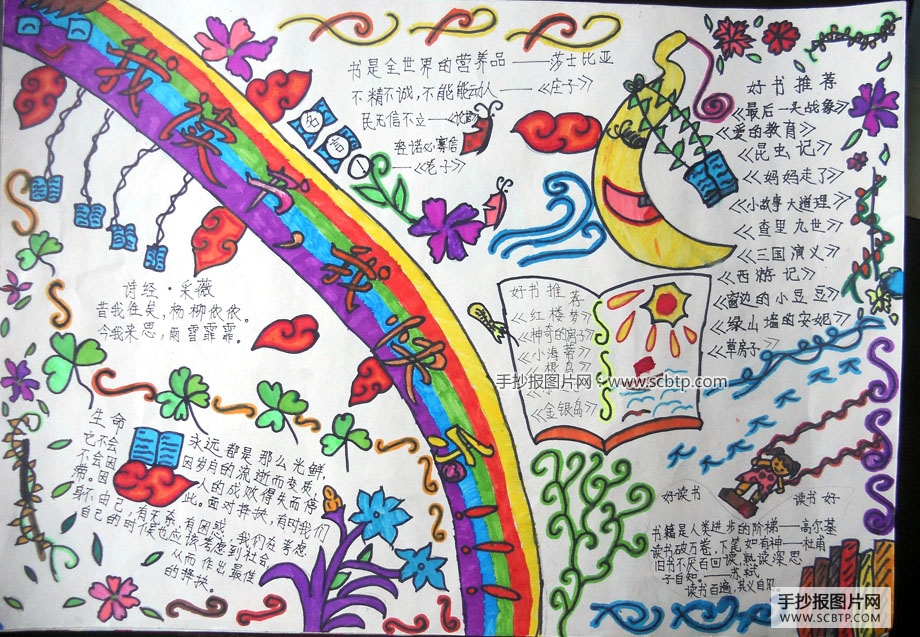 我读书，我快乐！！
书是全世界的营养品——莎士比亚
不精不诚，不能能动人——《庄子》
民无信不立——
轻诺必寡信
——《老子》
好书推荐
《最后一头战象》
《爱的教育》
《昆虫记》
《妈妈走了》
《小故事大道理》
《查里九世》
《三国演义》
《西游记》
《窗边的小豆豆》
《绿山墙的安妮》
《草房子》
诗经·采薇
昔我往矣，杨柳依依。
今我来思，雨雪霏霏。
好书推荐
《红楼梦》
《神奇的房子》
《小海蒂》
《根鸟》
《金银岛》
手抄报图片网：www.scbtp.com
生命
它不会永远都是那么光鲜，
不会因岁月的流逝而变质，
人的成败得失而停
滞。因此。面对抉择，有时我们
身不由己，有无奈，有困惑，我们在考虑
自己的时候也应该考虑到社会，
从而作出最佳
的抉择。
好读书
读书好
书籍是人类进步的阶梯——高尔基
读书破万卷，下笔如有神——杜甫
旧书不厌百回读，熟读深思
子自知。——苏轼
读书百遍，其义自见
手抄报图片网
WWW.SCBTP.COM